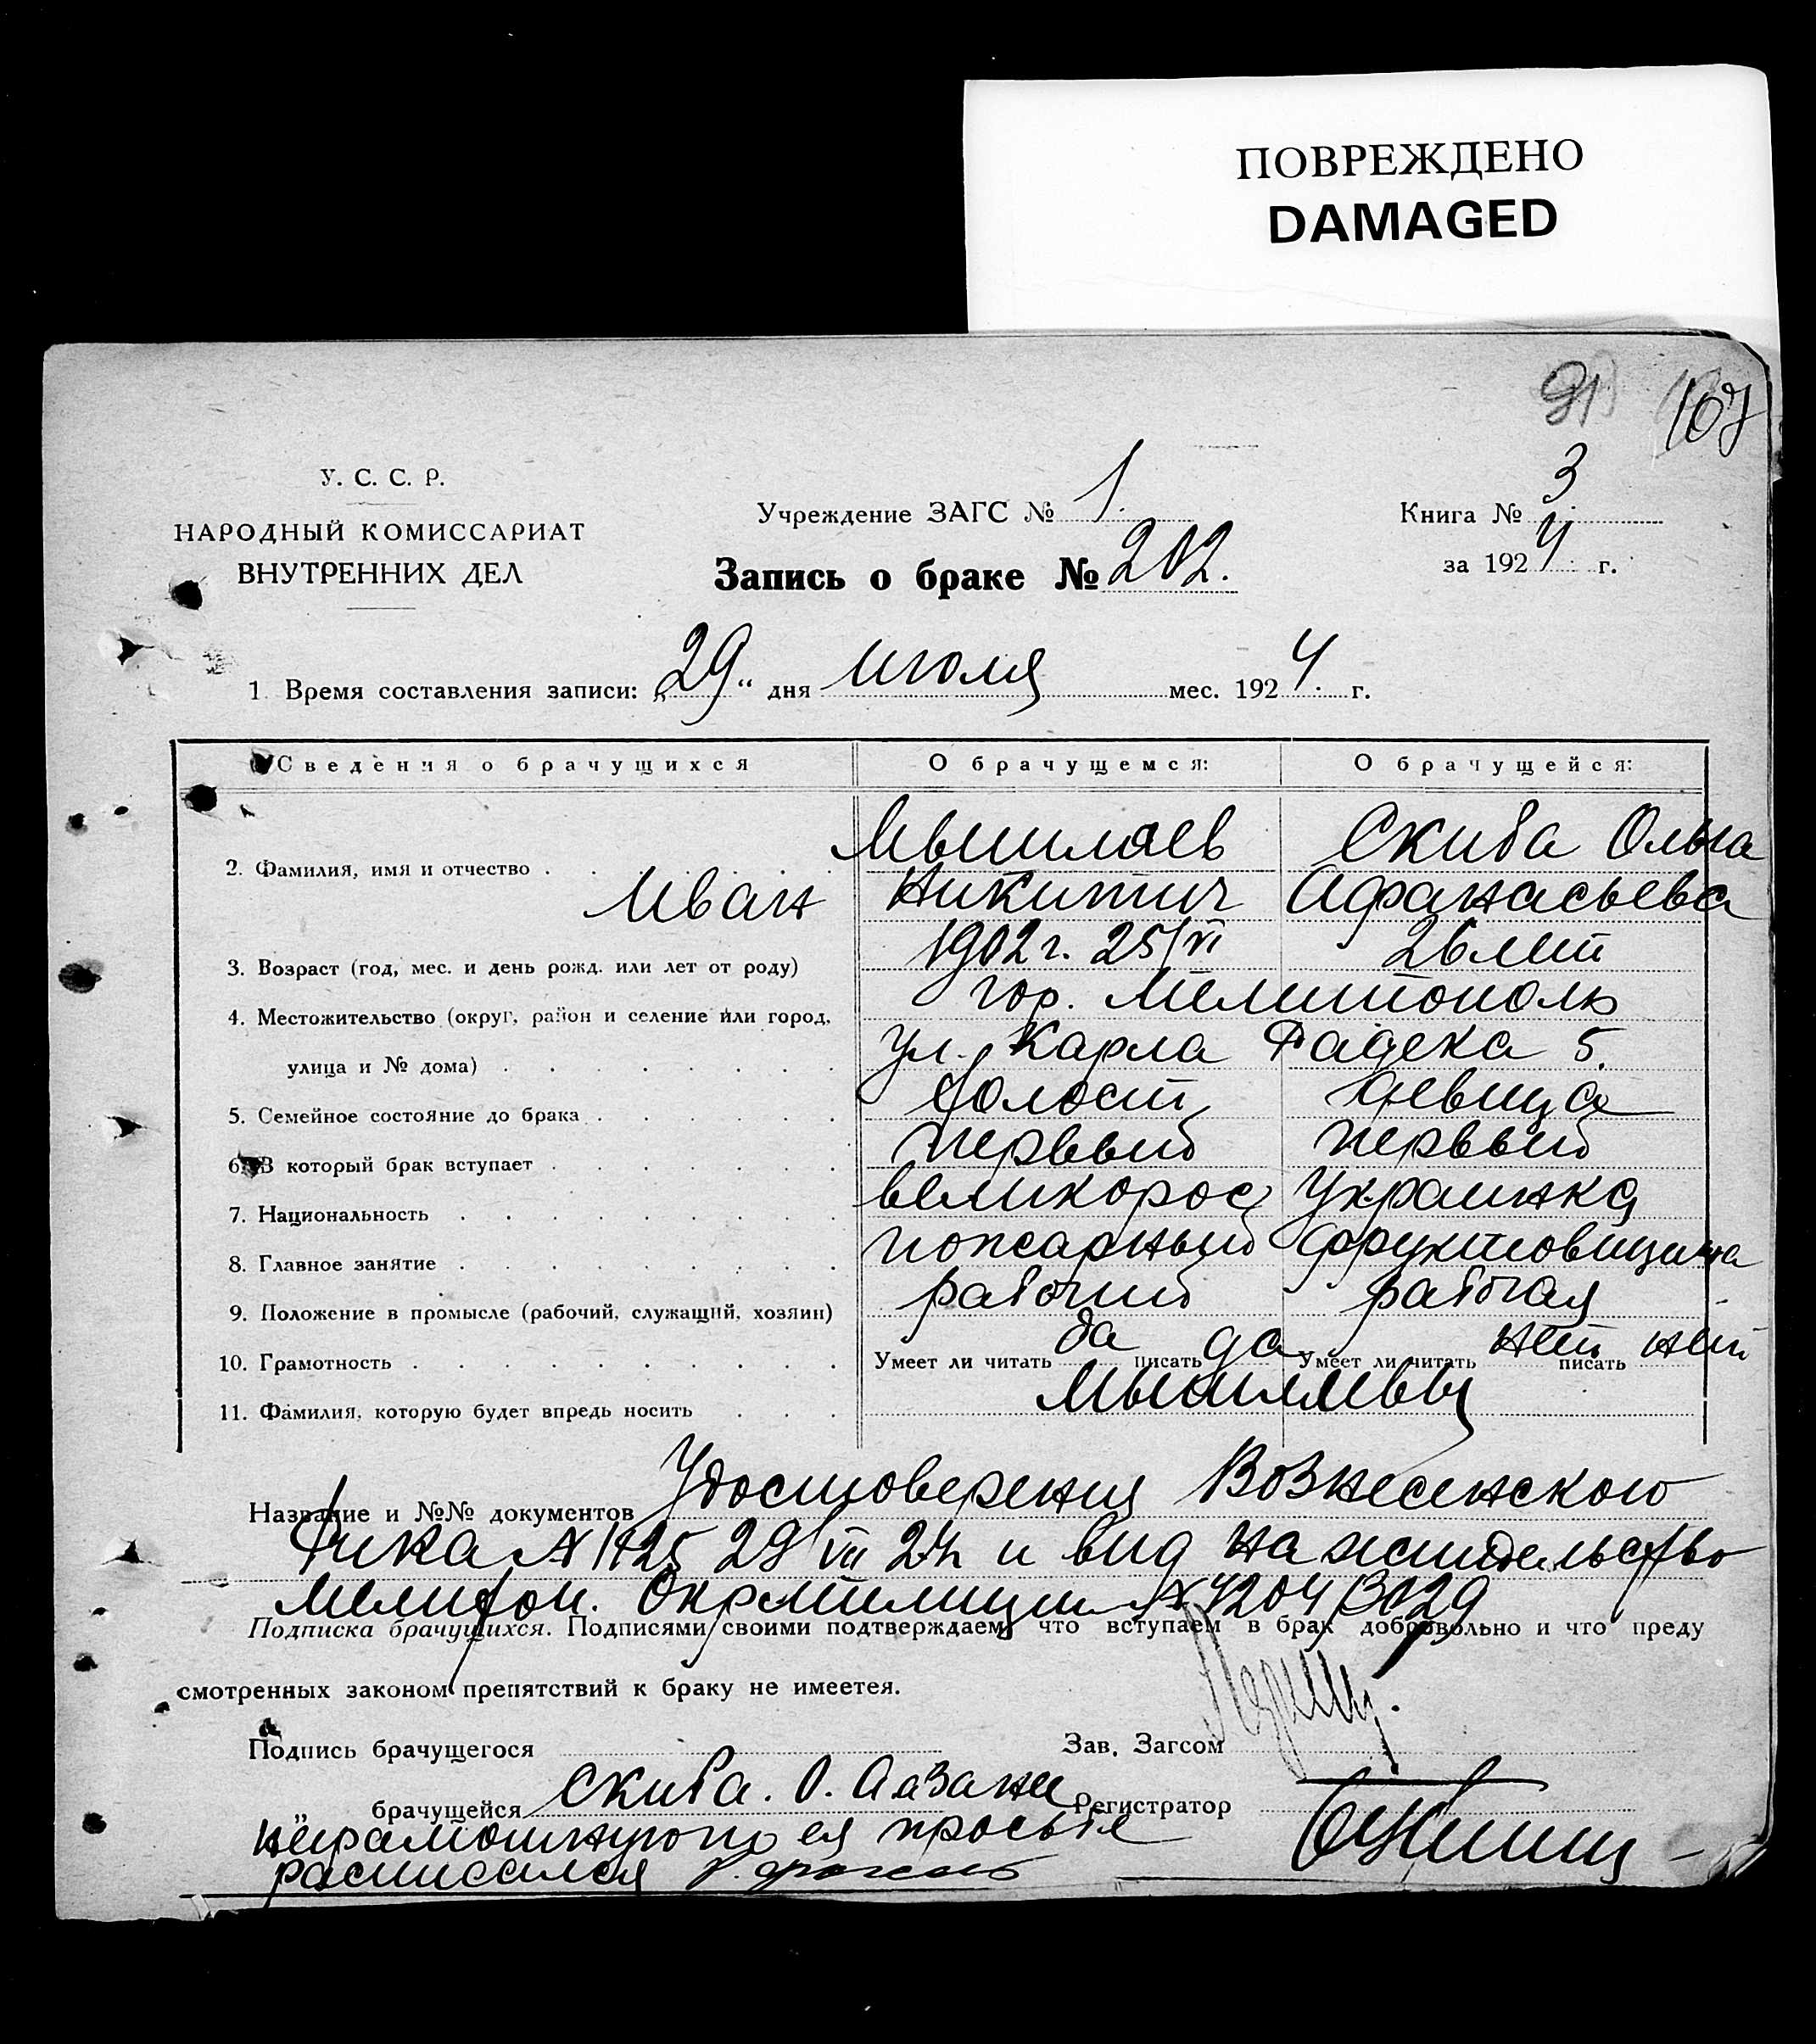 ПОВРЕЖДЕНО
DAMAGED
91 107
У. С. С. Р.
НАРОДНЫЙ КОМИССАРИАТ
ВНУТРЕННИХ ДЕЛ
Учреждение ЗАГС № 1.
Книга № 3
Запись о браке № 202.
за 1924 г.
1. Время составления записи: „29“ дня июля мес. 1924. г.
Сведения о брачущихся О брачущемся: О брачущейся:
2. Фамилия, имя и отчество Мышлаев Скиба Ольга
Иван Никитич Афанасьева
3. Возраст (год, мес. и день рожд. или лет от роду) 1902 г. 25/VI 26 лет
4. Местожительство (округ, район и селение или город, гор. Мелитополь
улица и № дома) ул. Карла Радека 5.
5. Семейное состояние до брака холост девица
6. В который брак вступает первый первый
7. Национальность великорос Украинка
8. Главное занятие пожарный фруктовщица
9. Положение в промысле (рабочий, служащий, хозяин) рабочий рабочая
10. Грамотность Умеет ли читать да писать да Умеет ли читать нет писать нет
11. Фамилия, которую будет впредь носить Мышлаевы
Название и №№ документов Удостоверения Вознесенского
Рика № 1425 29 VII 24 и вид на жительство
Мелитоп. Окрмилиции № 4204/3029
Подписка брачущихся. Подписями своими подтверждаем, что вступаем в брак добровольно и что преду
смотренных законом препятствий к браку не имеетея.
Подпись брачущегося Зав. Загсом
„ брачущейся Скиба. О. А а за нее Регистратор
неграмотную по ея просьбе
расписался